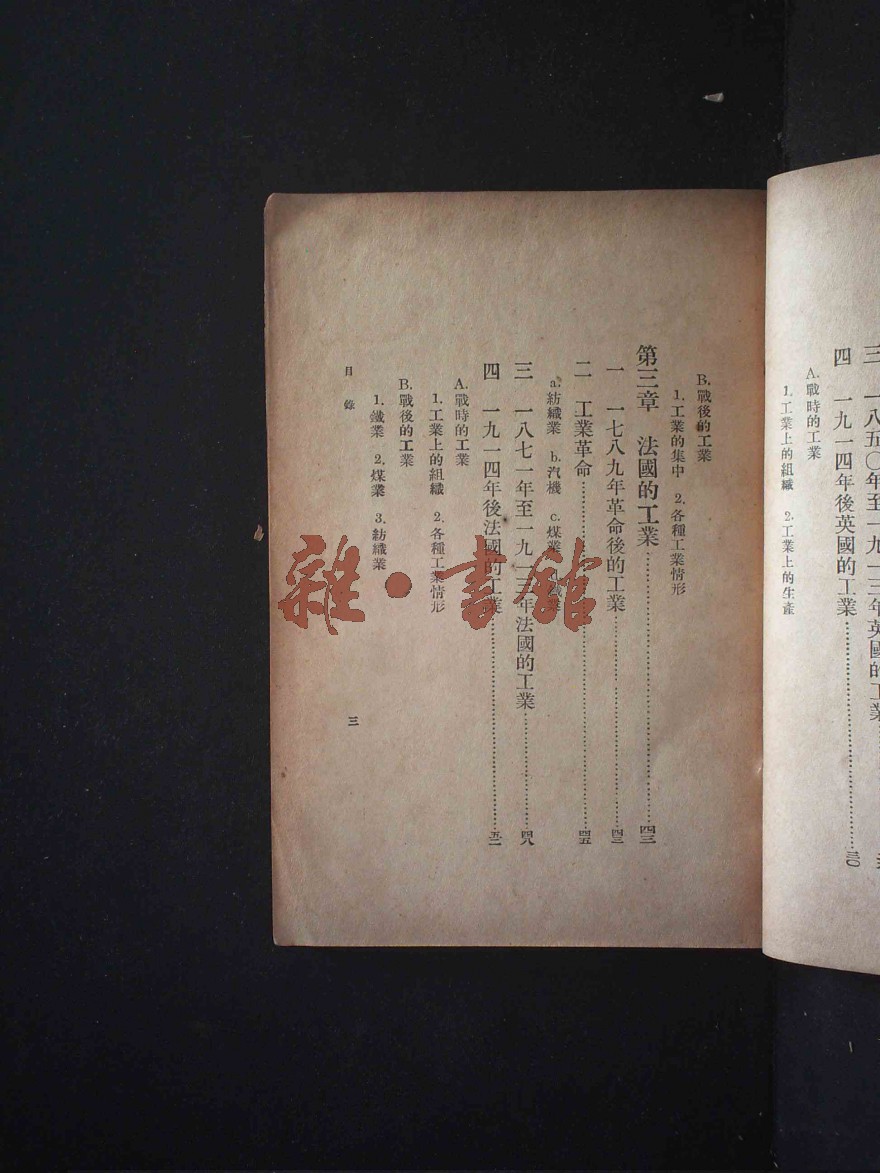 三 一八五〇年至一九一三年英國的工業
四 一九一四年後英國的工業…………三〇
A. 戰時的工業
1. 工業上的組織 2. 工業上的生產
B. 戰後的工業
1. 工業的集中 2. 各種工業情形
第三章 法國的工業…………四三
一 一七八九年革命後的工業…………四三
二 工業革命…………四五
a. 紡織業 b. 汽機 c. 煤業
三 一八七一年至一九一三年法國的工業…………四八
四 一九一四年後法國的工業…………五二
A. 戰時的工業
1. 工業上的組織 2. 各種工業情形
B. 戰後的工業
1. 鐵業 2. 煤業 3. 紡織業
目錄
三
雜·書館